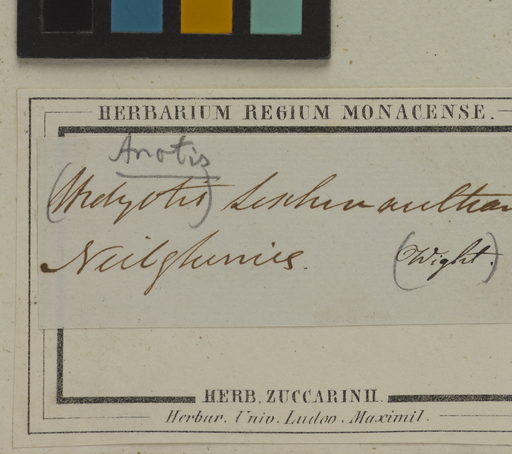 HERBARIUM REGIUM MONACENSE.
Anotis
(Hedyotis) Leschenaultian
Neilgherries. (Wight.)
HERB. ZUCCARINII.
Herbar. Univ. Ludov. Maximil.